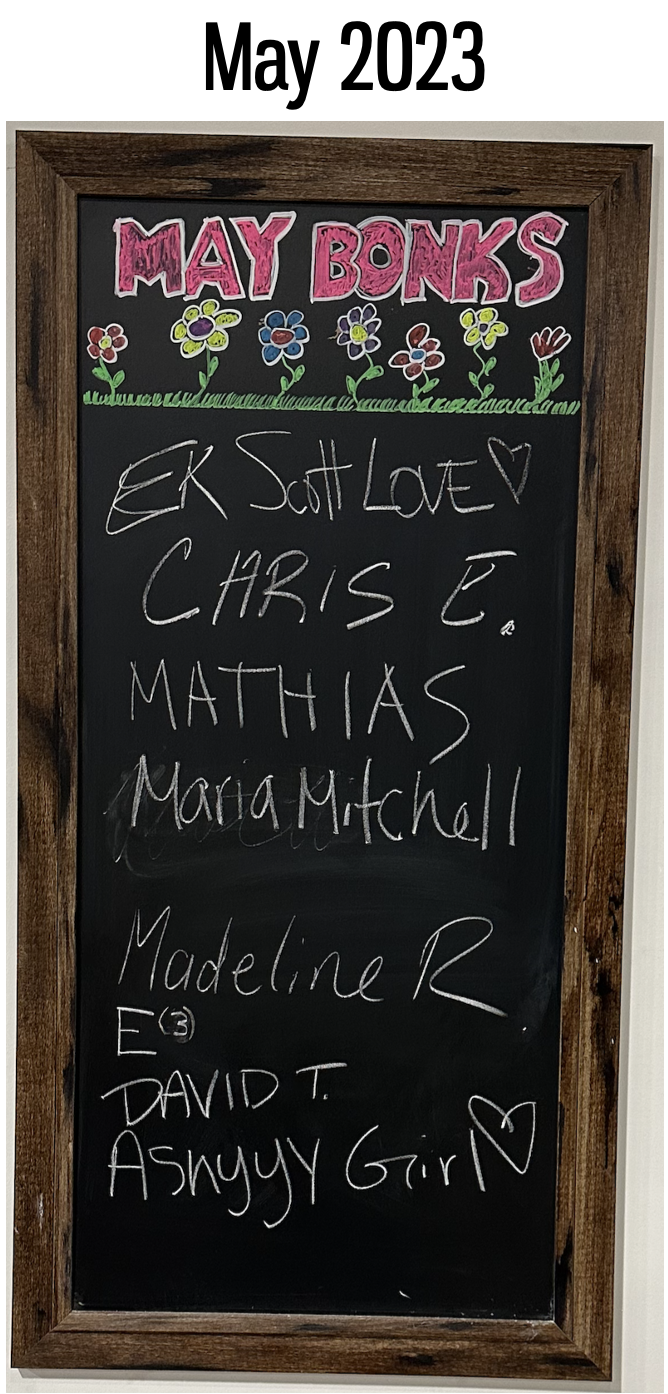 May 2023
MAY BONKS
EK Scott LOVE♡
CHRIS E.
MATHIAS
Maria Mitchell
Madeline R
E(3)
DAVID T.
Ashyyy Girl♡